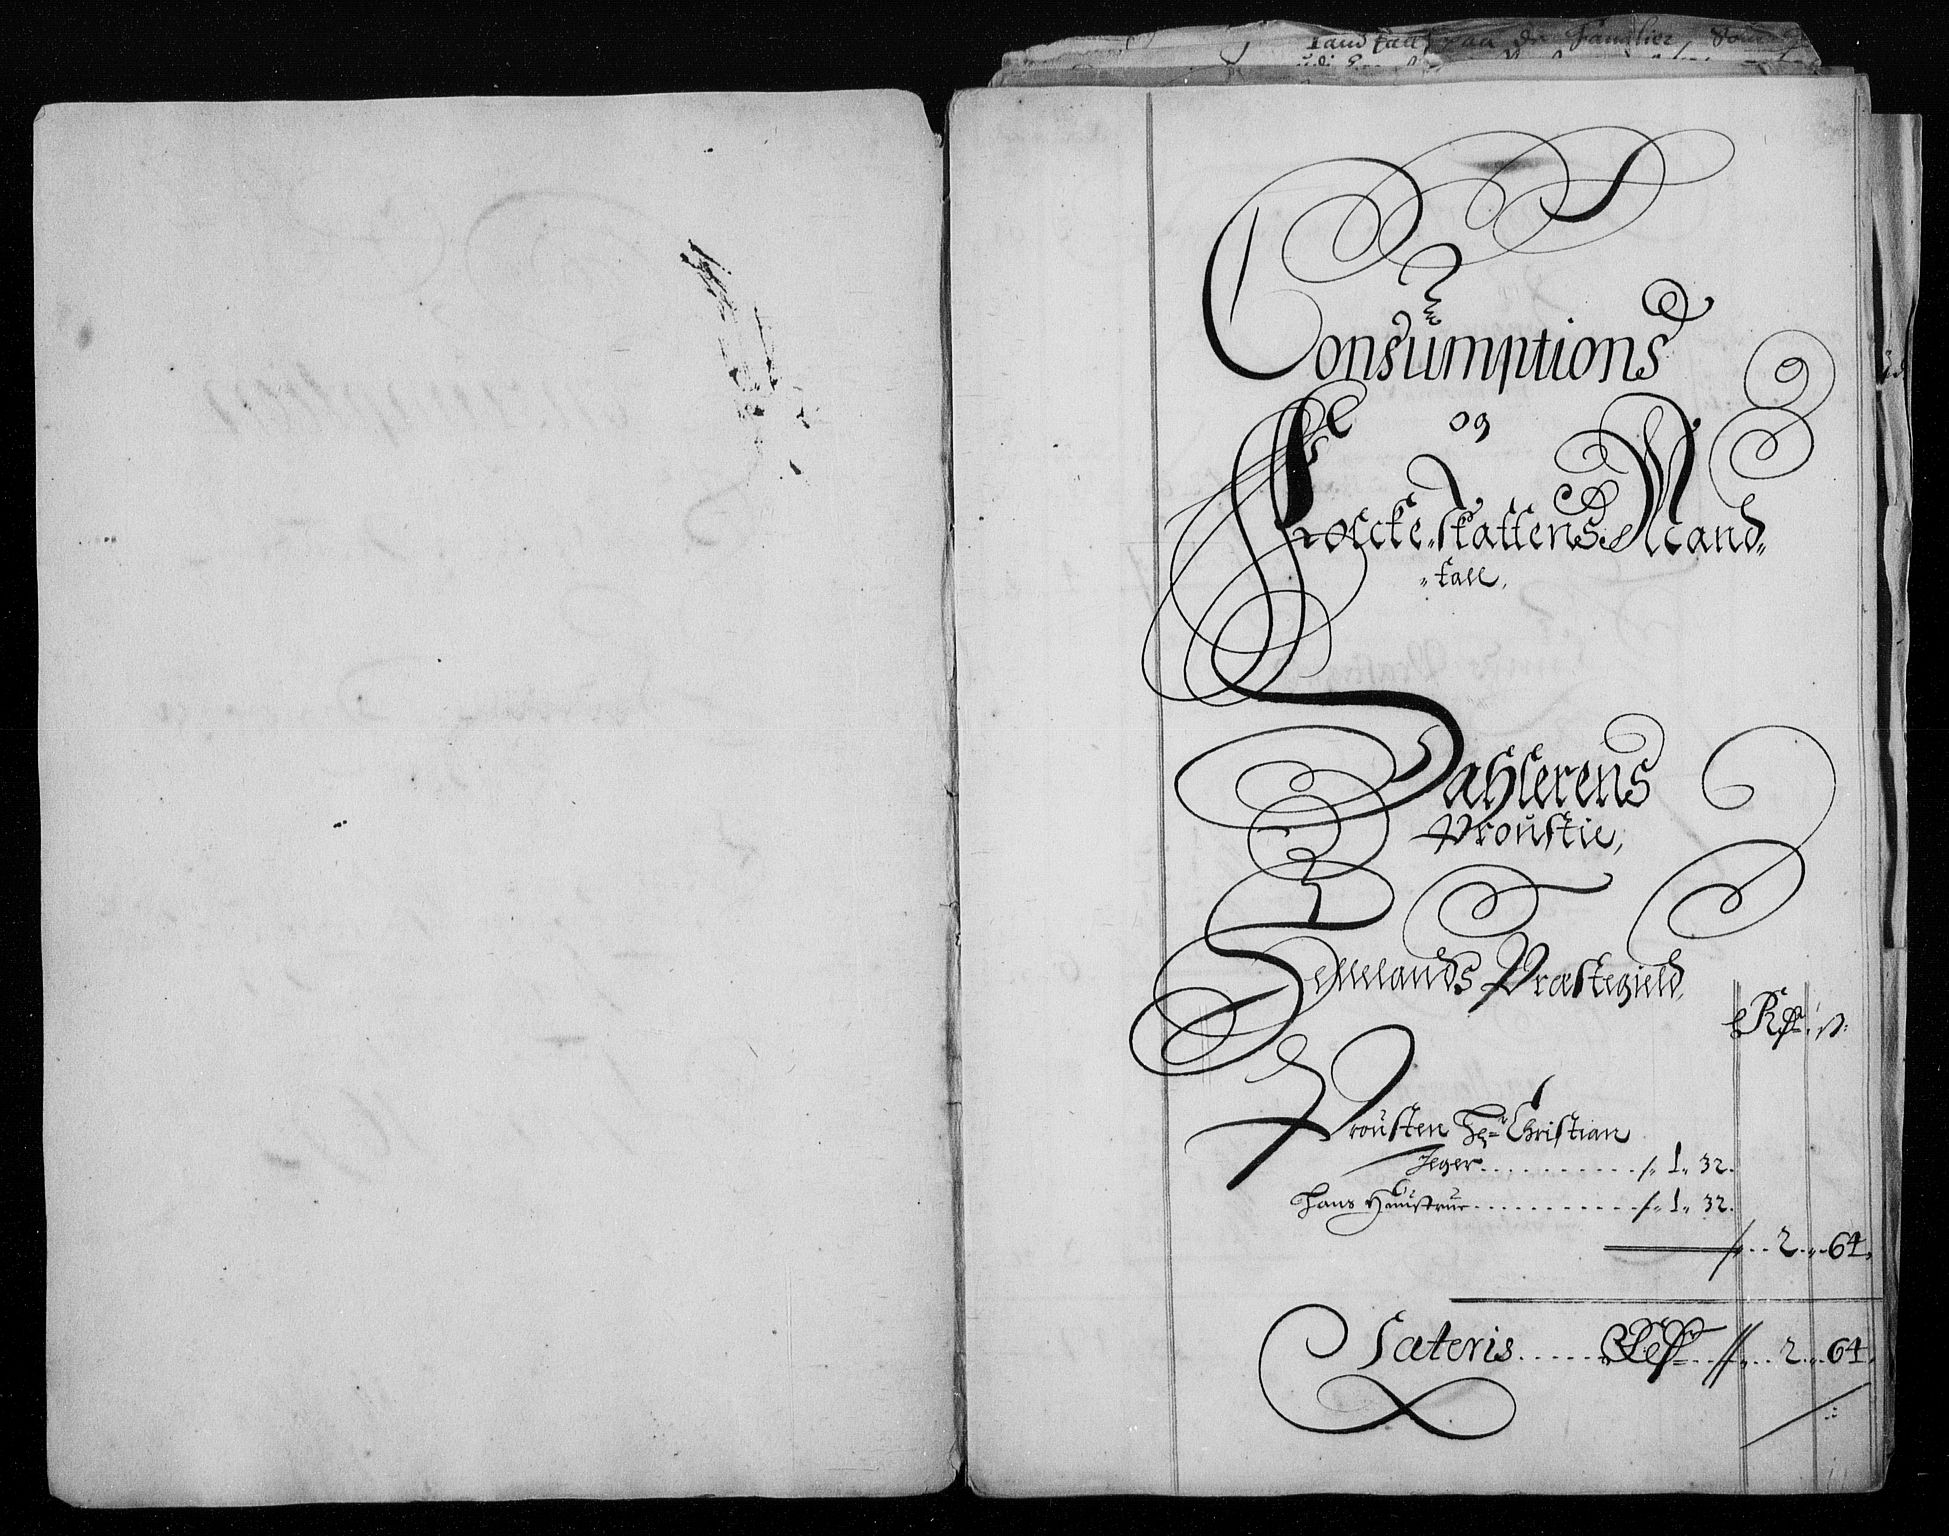 Mandtall paa de Familier, Som
Consumptions
og
Folcke Skattens Mand„
„tall,
Dahlerens
Proustie,
Hemelands Præstegield,
Rdr ß:
Prousten Hr Christian
Jeger . . . . . . . . . . . /„ 1„ 32.
Hans Huustrue . . . . . . . . . . . /„ 1„ 32.
/„ . . 2 . „ . 64„
Lateris . . . . . Rdr . . . //„ . . 2 . „ . 64„